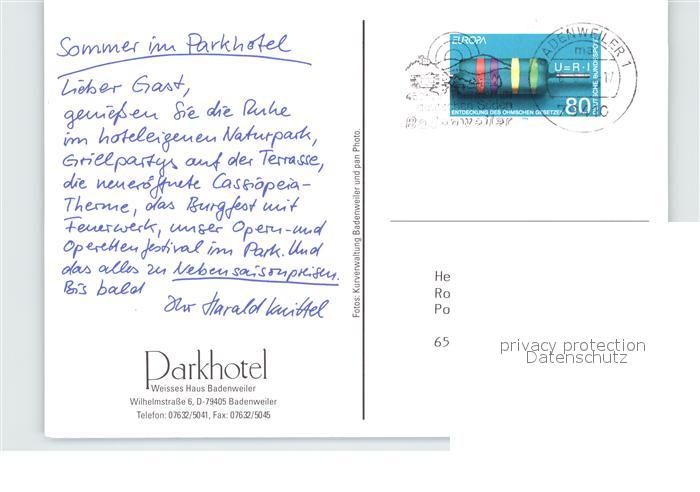 Sommer im Parkhotel
Lieber Gast,
genießen Sie die Ruhe
im hoteleigenen Naturpark,
Grillpartys auf der Terrasse,
die neueröffnete Cassiopeia-
Therme, das Burgfest mit
Feuerwerk, unser Opern- und
Operettenfestival im Park. Und
das alles zu Nebensaisonpreisen.
Bis bald
Ihr Harald Knittel
Parkhotel
Weisses Haus Badenweiler
Wilhelmstraße 6, D-79405 Badenweiler
Telefon: 07632/5041, Fax: 07632/5045
Fotos: Kurverwaltung Badenweiler und pan Photo.
EUROPA
U=R·I
80
DEUTSCHE BUNDESPOST
ENTDECKUNG DES OHMSCHEN GESETZES
BADENWEILER 1
Badenweiler
He
Ro
Po
65
privacy protection
Datenschutz